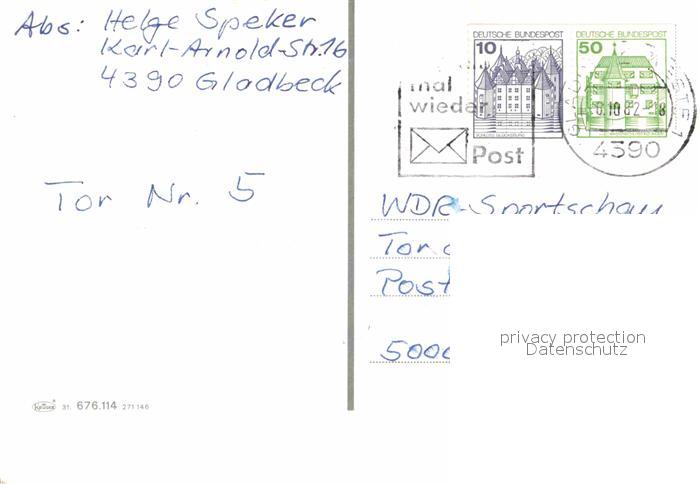 Abs: Helge Speker
Karl-Arnold-Str.16
4390 Gladbeck
Tor Nr. 5
DEUTSCHE BUNDESPOST
10
SCHLOSS GLÜCKSBURG
DEUTSCHE BUNDESPOST
50
mal
wieder
Post
4390
WDR-Sportschau
Tor
Post
5000
privacy protection
Datenschutz
Krüger 31. 676.114 271 146